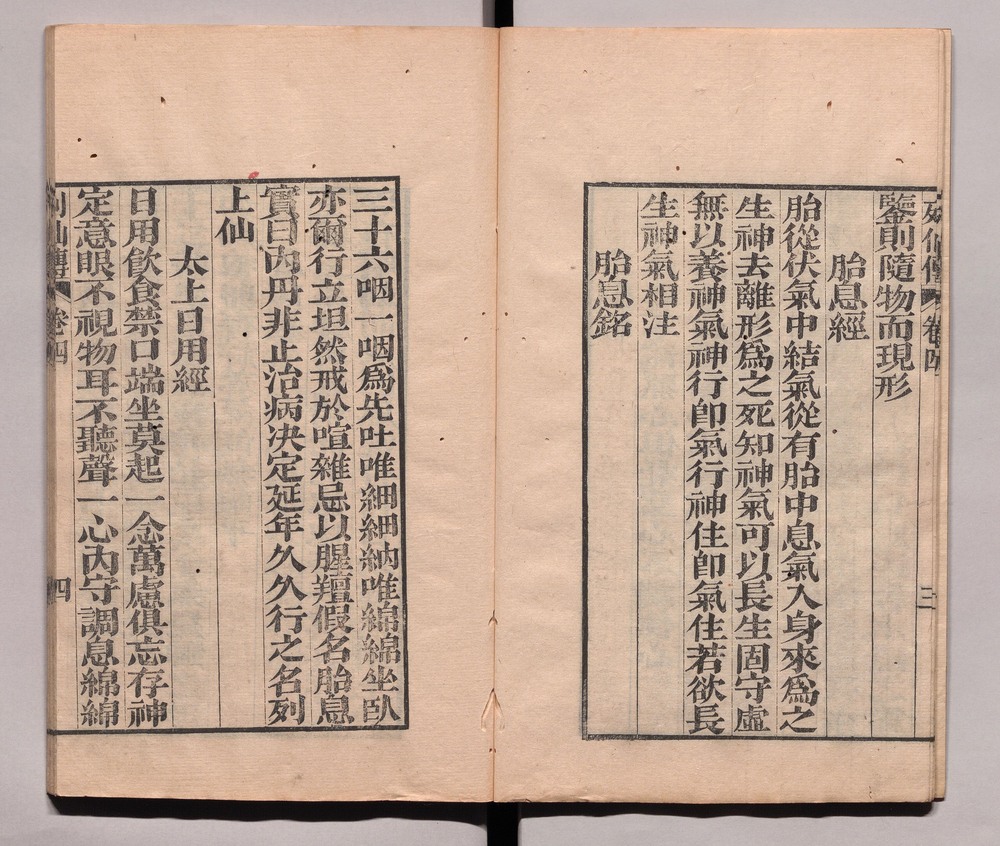 列仙傳 卷四 三
鑒則隨物而現形
胎息經
胎從伏氣中結氣從有胎中息氣入身來爲之
生神去離形爲之死知神氣可以長生固守虛
無以養神氣神行卽氣行神住卽氣住若欲長
生神氣相注
胎息銘
三十六咽一咽爲先吐唯細細納唯綿綿坐臥
亦爾行立坦然戒於喧雜忌以腥羶假名胎息
實曰內丹非止治病決定延年久久行之名列
上仙
太上日用經
日用飮食禁口端坐莫起一念萬慮俱忘存神
定意眼不視物耳不聽聲一心內守調息綿綿
列仙傳 卷四 四